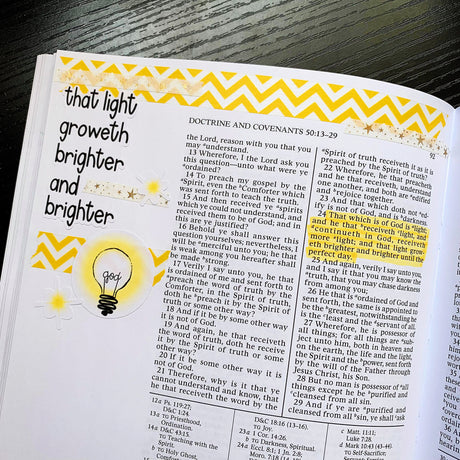 that light
groweth
brighter
and
brighter
god
DOCTRINE AND COVENANTS 50:13–29
92
the Lord, reason with you that you
may ᵃunderstand.
13 Wherefore, I the Lord ask you
this question—unto what were ye
ᵃordained?
14 To preach my gospel by the
ᵃSpirit, even the ᵇComforter which
was sent forth to teach the truth.
15 And then received ye ᵃspirits
which ye could not understand, and
received them to be of God; and in
this are ye justified?
16 Behold ye shall answer this
question yourselves; nevertheless, I
will be ᵃmerciful unto you; he that
is weak among you hereafter shall
be made ᵇstrong.
17 Verily I say unto you, he that
is ordained of me and sent forth to
preach the word of truth by the
Comforter, in the Spirit of truth,
doth he ᵇpreach it by the Spirit of
truth or some other way?
18 And if it be by some other way
it is not of God.
19 And again, he that receiveth
the word of truth, doth he receive
it by the Spirit of truth or some
other way?
20 If it be some other way it is
not of God.
21 Therefore, why is it that ye
cannot understand and know, that
he that receiveth the word by the
ᵃSpirit of truth receiveth it as it is
preached by the Spirit of truth?
22 Wherefore, he that preacheth
and he that receiveth, understand
one another, and both are ᵃedified
and ᵇrejoice together.
23 And that which doth not ᵃed-
ify is not of God, and is ᵇdarkness.
24 That which is of God is ᵃlight;
and he that ᵇreceiveth ᶜlight, and
ᵈcontinueth in God, receiveth
more ᵉlight; and that light grow-
eth brighter and brighter until the
perfect day.
25 And again, verily I say unto you,
and I say it that you may know the
ᵃtruth, that you may chase darkness
from among you;
26 He that is ᵃordained of God and
sent forth, the same is appointed to
be the ᵇgreatest, notwithstanding he
is the ᶜleast and the ᵈservant of all.
27 Wherefore, he is possessor of
all things; for all things are ᵃsub-
ject unto him, both in heaven and
on the earth, the life and the light,
the Spirit and the ᵇpower, sent forth
by the will of the Father through
Jesus Christ, his Son.
28 But no man is possessor of ᵃall
things except he be ᵇpurified and
ᶜcleansed from all sin.
29 And if ye are ᵃpurified and
cleansed from all ᵇsin, ye shall ᶜask
12a Ps. 119:27;
D&C 1:24.
13a TG Priesthood,
Ordination.
14a D&C 43:15.
TG Teaching with the
Spirit.
b TG Holy Ghost,
D&C 18:16 (13–16).
TG Joy.
23a 1 Cor. 14:26.
b TG Darkness, Spiritual.
c Matt. 11:11;
Luke 7:28.
d Mark 10:43 (42–44).
TG Self-Sacrifice;